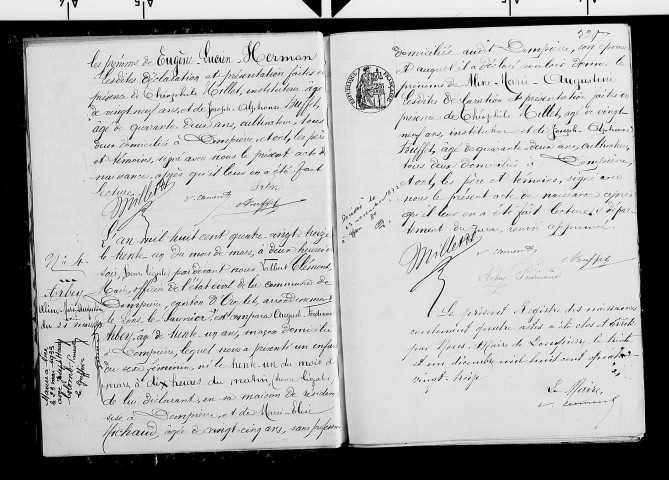 les prénoms de Eugène Lucien Herman
lesdites déclaration et présentation faites en
présence de Théophile Millet, instituteur, âgé
de vingt neuf ans, et de Joseph Alphonse Buffet,
âgé de quarante deux ans, cultivateur, tous
deux domiciliés à Dompierre, et ont, les père
et témoins, signé avec nous le présent acte de
naissance, après qu'il leur en a été fait
lecture
Millet
Buffet
N° 4
Arbey
Aline Marie Augustine
du 31 mars
L'an mil huit cent quatre-vingt treize
le trente-un du mois de mars, à deux heures du
soir, (heure légale) par devant nous Clément
Maire, officier de l'état civil de la commune de
Dompierre, canton d'Orgelet, arrondissement
de Lons le Saunier, est comparu August Ferdinand
Arbey, âgé de trente-un ans, maçon domicilié
à Dompierre, lequel nous a présenté un enfant
du sexe féminin, né le trente-un du mois de
mars, à dix heures du matin, (heure légale)
de lui déclarant, en sa maison de résidence
sise à Dompierre, et de Marie
Michaud, âgée de vingt-cinq ans, sans profession
domiciliée audit Dompierre, son épouse
et auquel il a déclaré vouloir donner les
prénoms de Aline-Marie-Augustine
lesdites déclaration et présentation faites en
présence de Théophile Millet, âgé de vingt
neuf ans, instituteur et de Joseph Alphonse
Buffet, âgé de quarante deux ans, cultivateur,
tous deux domiciliés à Dompierre,
et ont, les père et témoins, signé avec
nous le présent acte de naissance après
qu'il leur en a été fait lecture
du Jura, renvoi approuvé
Millet
Buffet
Arbey Ferdinand
Le présent Registre des naissances
contenant quatre actes a été clos et arrêté
par Nous, Maire de Dompierre, le trente
et un décembre mil huit cent quatre
vingt treize
Le Maire,